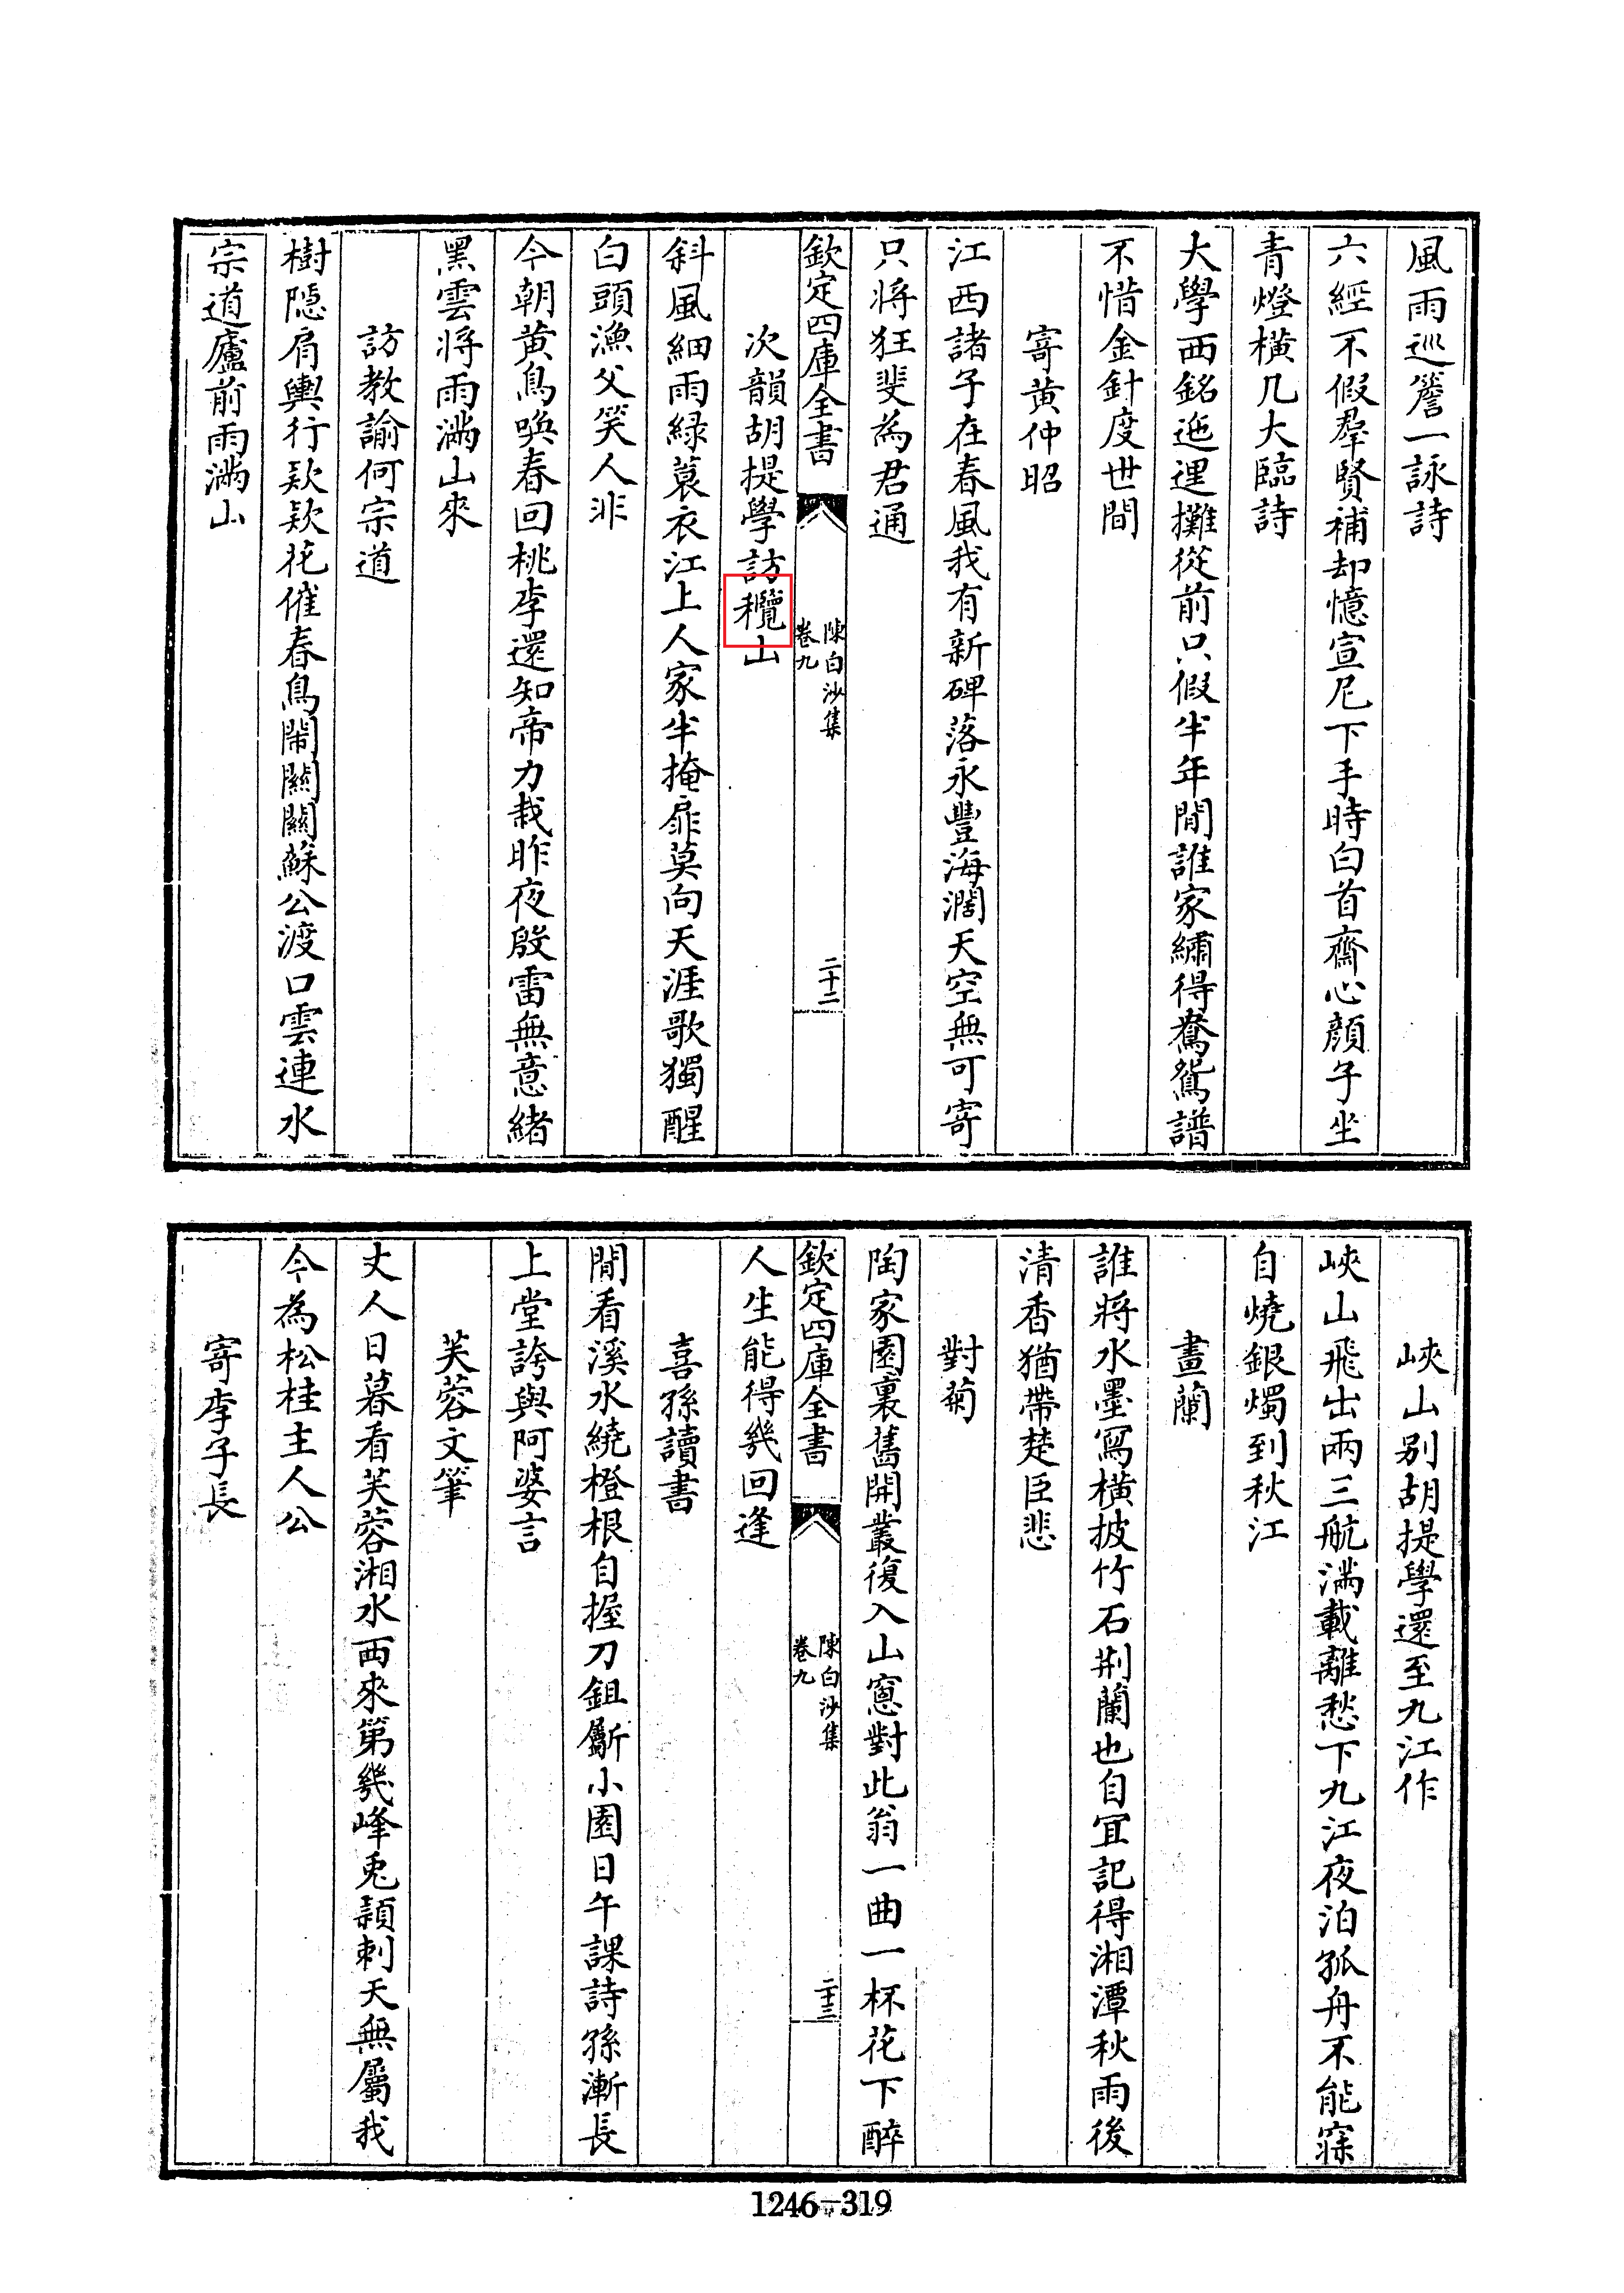 風雨巡簷一詠詩
六經不假羣賢補却憶宣尼下手時白首齋心顔子坐
青燈橫几大臨詩
大學西銘迤邐攤從前只假半年閒誰家繡得鴦鴛譜
不惜金針度世間
寄黄仲昭
江西諸子在春風我有新碑落永豐海濶天空無可寄
只将狂斐為君通
欽定四庫全書
陳白沙集
卷九
二十二
次韻胡提學訪⿰禾覽山
斜風細雨緑蓑衣江上人家半掩扉莫向天涯歌獨醒
白頭漁父笑人非
今朝黄鳥喚春回桃李還知帝力栽昨夜殷雷無意緒
黑雲将雨滿山來
訪教諭何宗道
樹隠肩輿行欵欵花催春鳥鬧關關蘇公渡口雲連水
宗道廬前雨滿山
峽山别胡提學還至九江作
峽山飛出兩三航滿載離愁下九江夜泊孤舟不能寐
自燒銀燭到秋江
畫蘭
誰將水墨寫橫披竹石荆蘭也自宜記得湘潭秋雨後
清香猶帶楚臣悲
對菊
陶家園裏舊開叢復入山窻對此翁一曲一杯花下醉
欽定四庫全書
陳白沙集
卷九
二十三
人生能得幾回逢
喜孫讀書
閒看溪水繞橙根自握刀鉏斸小園日午課詩孫漸長
上堂誇與阿婆言
芙蓉文筆
丈人日暮看芙蓉湘水西來第幾峰兎頴刺天無屬我
今為松桂主人公
寄李子長
1246-319